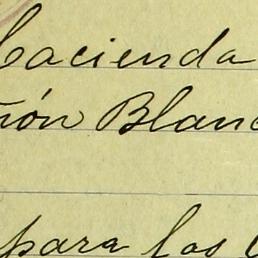 Hacienda
ñón Blanc
para los